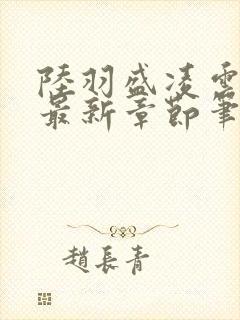 陸羽盛凌雲
最新章節筆
趙長青